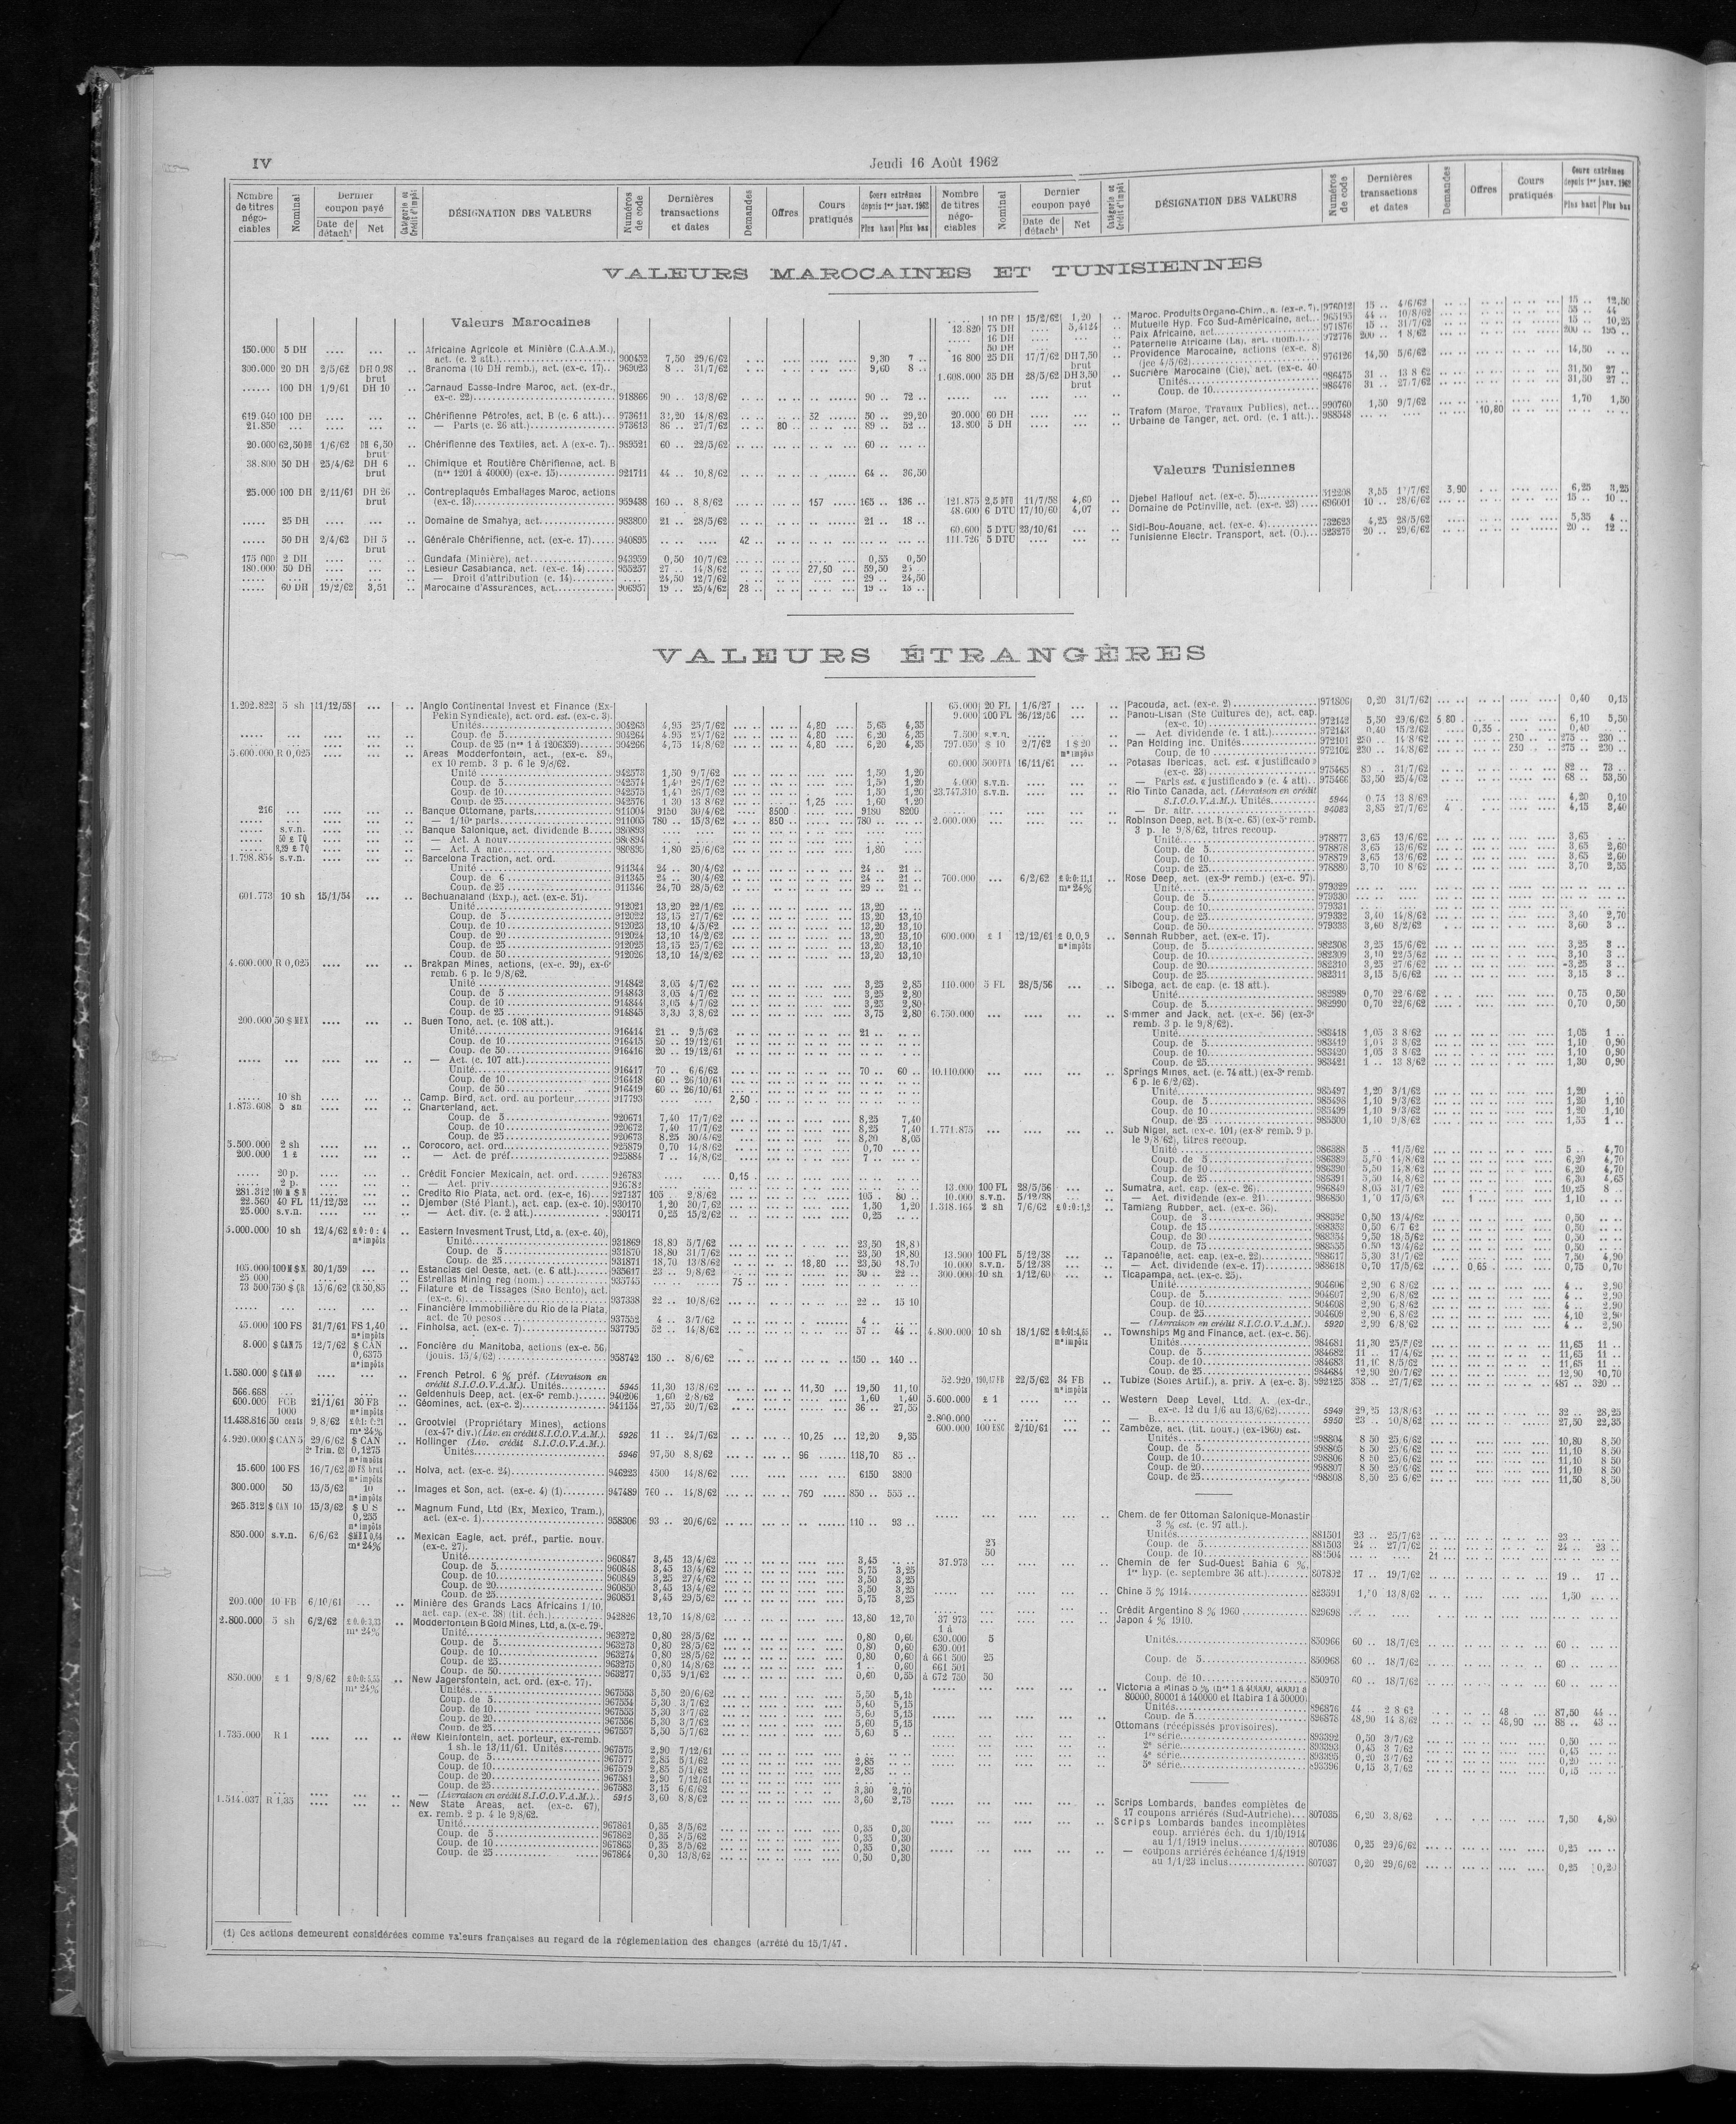 IV
Jeudi 16 Août 1962
Nombre de titres négociables
Nominal
Dernier coupon payé
Date de détacht
Net
DÉSIGNATION DES VALEURS
Numéros de code
Dernières transactions et dates
Demandes
Offres
Cours pratiqués
Cours extrêmes depuis 1er janv. 1962
Plus haut
Plus bas
VALEURS MAROCAINES ET TUNISIENNES
Valeurs Marocaines
150.000 5 DH .... ... .. Africaine Agricole et Minière (C.A.A.M.),
act. (c. 2 att.) 900452 7,50 29/6/62 9,30 7 ..
300.000 20 DH 2/5/62 DH 0,98 brut .. Branoma (10 DH remb.), act. (ex-c. 17) 969023 8 .. 31/7/62 9,60 8 ..
...... 100 DH 1/9/61 DH 10 .. Carnaud Basse-Indre Maroc, act. (ex-dr.,
ex-c. 22) 918866 90 .. 13/8/62 90 .. 72 ..
619.040 100 DH .... ... .. Chérifienne Pétroles, act. B (c. 6 att.) 973611 14/8/62 32 ..... 50 .. 29,20
21.850 ... .... ... .. — Parts (c. 26 att.) 973613 86 .. 27/7/62 80 .. 89 .. 52 ..
20.000 62,50 DH 1/6/62 DH 6,50 brut .. Chérifienne des Textiles, act. A (ex-c. 7) 989521 60 .. 22/5/62 60 ..
38.800 50 DH 25/4/62 DH 6 brut .. Chimique et Routière Chérifienne, act. B
(nos 1201 à 40000) (ex-c. 15) 921711 44 .. 10/8/62 64 .. 36,50
25.000 100 DH 2/11/61 DH 26 brut .. Contreplaqués Emballages Maroc, actions
(ex-c. 13) 959438 160 .. 8/8/62 157 ..... 165 .. 136 ..
..... 25 DH .... ... .. Domaine de Smahya, act. 983800 21 .. 28/5/62 21 .. 18 ..
..... 50 DH 2/4/62 DH 5 brut .. Générale Chérifienne, act. (ex-c. 17) 940895 42 ..
175.000 2 DH .... ... .. Gundafa (Minière), act. 943959 0,50 10/7/62 0,55 0,50
180.000 50 DH .... ... .. Lesieur Casablanca, act. (ex-c. 14) 955257 27 .. 14/8/62 27,50 59,50
— Droit d'attribution (c. 14) 24,50 12/7/62 29 .. 24,50
..... 60 DH 19/2/62 3,51 .. Marocaine d'Assurances, act. 906957 19 .. 25/4/62 28 .. 19 .. 13 ..
10 DH 15/2/62 1,20 .. Maroc. Produits Organo-Chim., a. (ex-c. 7) 976012 15 .. 4/6/62 15 .. 12,50
13.820 75 DH .... 5,4124 .. Mutuelle Hyp. Fco Sud-Américaine, act. 965195 44 .. 10/8/62 55 .. 44
..... 16 DH .... ... .. Paix Africaine, act. 971876 15 .. 31/7/62 15 .. 10,25
50 DH Paternelle Africaine (La), act. (nom.) 972776 200 .. 1/8/62 200 .. 195 ..
16.800 25 DH 17/7/62 DH 7,50 brut .. Providence Marocaine, actions (ex-c. 8)
(jce 4/5/62) 976126 14,50 5/6/62 14,50
1.608.000 35 DH 28/5/62 DH 3,50 brut .. Sucrière Marocaine (Cie), act. (ex-c. 40
Unités 986475 31 .. 13/8/62 31,50 27 ..
Coup. de 10 986476 31 .. 27/7/62 31,50 27 ..
20.000 60 DH .... ... .. Trafom (Maroc, Travaux Publics), act. 990760 1,50 9/7/62 1,70 1,50
13.800 5 DH .... ... .. Urbaine de Tanger, act. ord. (c. 1 att.) 988548 10,80
Valeurs Tunisiennes
121.875 2,5 DTU 11/7/58 4,60 .. Djebel Hallouf act. (ex-c. 5) 512208 3,55 3,90 6,25 3,25
48.600 6 DTU 17/10/60 4,07 .. Domaine de Potinville, act. (ex-c. 23) 696601 10 .. 28/6/62 15 .. 10 ..
60.600 5 DTU 23/10/61 ... .. Sidi-Bou-Aouane, act. (ex-c. 4) 732623 4,25 28/5/62 5,35 4 ..
111.726 5 DTU .... ... .. Tunisienne Electr. Transport, act. (O.) 523275 20 .. 29/6/62 20 .. 12 ..
VALEURS ÉTRANGÈRES
1.202.822 5 sh 11/12/58 ... .. Anglo Continental Invest et Finance (Ex-
Pekin Syndicate), act. ord. est. (ex-c. 3).
Unités 904263 4,95 25/7/62 4,80 5,65 4,35
Coup. de 5 904264 4,95 25/7/62 4,80 6,20 4,35
Coup. de 25 (nos 1 à 1206359) 904266 4,75 14/8/62 4,80 6,20 4,35
5.600.000 R 0,025 .... ... .. Areas Modderfontein, act., (ex-c. 89,
ex 10 remb. 3 p. 6 le 9/8/62.
Unité 942573 1,50 9/7/62 1,50 1,20
Coup. de 5 942574 1,40 26/7/62 1,50 1,20
Coup. de 10 942575 1,40 26/7/62 1,50 1,20
Coup. de 25 942576 1,30 13/8/62 1,25 1,60 1,20
216 ... .... ... .. Banque Ottomane, parts 911004 9150 30/4/62 8500 9180 8200
— 1/10e parts 911005 780 .. 15/3/62 850 .. 780 ..
s.v.n. Banque Salonique, act. dividende B 980893
50 £ TQ — Act. A nouv. 980894
8,29 £ TQ — Act. A anc. 980895 1,80 25/6/62 1,80
1.798.854 s.v.n. .... ... .. Barcelona Traction, act. ord.
Unité 911344 24 .. 30/4/62 24 .. 21 ..
Coup. de 6 911345 24 .. 30/4/62 24 .. 21 ..
Coup. de 25 911346 24,70 28/5/62 29 .. 21 ..
601.773 10 sh 15/1/54 ... .. Bechuanaland (Exp.), act. (ex-c. 51).
Unité 912021 13,20 22/1/62 13,20
Coup. de 5 912022 13,15 27/7/62 13,20 13,10
Coup. de 10 912023 13,10 4/5/62 13,20 13,10
Coup. de 20 912024 13,10 14/2/62 13,20 13,10
Coup. de 25 912025 13,15 25/7/62 13,20 13,10
Coup. de 50 912026 13,10 14/2/62 13,20 13,10
4.600.000 R 0,025 .... ... .. Brakpan Mines, actions, (ex-c. 99), ex-6e
remb. 6 p. le 9/8/62.
Unité 914842 3,05 4/7/62 3,25 2,85
Coup. de 5 914843 3,05 4/7/62 3,25 2,80
Coup. de 10 914844 3,05 4/7/62 3,25 2,80
Coup. de 25 914845 3,30 3/8/62 3,75 2,80
200.000 50 $ MEX .... ... .. Buen Tono, act. (c. 108 att.).
Unité 916414 21 .. 9/5/62 21 ..
Coup. de 10 916415 20 .. 19/12/61
Coup. de 50 916416 20 .. 19/12/61
— Act. (c. 107 att.)
Unité 916417 70 .. 6/6/62 70 .. 60 ..
Coup. de 10 916418 60 .. 26/10/61
Coup. de 50 916419 60 .. 26/10/61
..... 10 sh .... ... .. Camp. Bird, act. ord. au porteur 917793 2,50
1.873.608 5 sh .... ... .. Charterland, act.
Coup. de 5 920671 7,40 17/7/62 8,25 7,40
Coup. de 10 920672 7,40 17/7/62 8,25 7,40
Coup. de 25 920673 8,25 30/4/62 8,30 8,05
5.500.000 2 sh .... ... .. Corocoro, act. ord. 925879 0,70 14/8/62 0,70
200.000 1 £ .... ... .. — Act. de préf. 925884 7 .. 14/8/62 7 ..
..... 20 p. .... ... .. Crédit Foncier Mexicain, act. ord. 926783 0,15
..... 2 p. .... — Act. priv. 926782
281.312 100 M $ N .... ... .. Credito Rio Plata, act. ord. (ex-c, 16) 927137 105 .. 2/8/62 105 . 80 ..
22.560 40 FL 11/12/52 ... .. Djember (Sté Plant.), act. cap. (ex-c. 10) 930170 1,20 30/7/62 1,50 1,20
25.000 s.v.n. ... .. — Act. div. (c. 2 att.) 930171 0,25 15/2/62 0,25
5.000.000 10 sh 12/4/62 £ 0:0:4 me impôts .. Eastern Invesment Trust, Ltd, a. (ex-c. 40),
Unité 931869 18,80 5/7/62 23,50 18,80
Coup. de 5 931870 18,80 31/7/62 23,50 18,80
Coup. de 25 931871 18,70 13/8/62 18,80 23,50 18,70
105.000 100 M $ N 30/1/59 ... .. Estancias del Oeste, act. (c. 6 att.) 935617 23 .. 9/8/62 30 .. 22 ..
25.000 Estrellas Mining reg (nom.) 935745 75 ..
73.500 750 $ CR 15/6/62 CR 50,85 .. Filature et de Tissages (Sao Bento), act.
(ex-c. 6) 937338 22 .. 10/8/62 22 .. 15 10
Financière Immobilière du Rio de la Plata,
act. de 70 pesos 937552 4 .. 3/7/62 4 ..
45.000 100 FS 31/7/61 FS 1,40 me impôts .. Finholsa, act. (ex-c. 7) 937795 52 .. 14/8/62 57 .. 44 ..
8.000 $ CAN 75 12/7/62 $ CAN 0,6375 me impôts .. Foncière du Manitoba, actions (ex-c. 56,
(jouis. 15/4/62) 958742 150 .. 8/6/62 150 .. 140 ..
1.580.000 $ CAN 40 .... ... .. French Petrol. 6 % préf. (Livraison en
crédit S.I.C.O.V.A.M.). Unités 5945 11,30 13/8/62 11,30 19,50 11,10
566.668 Geldenhuis Deep, act. (ex-6e remb.) 940206 1,60 2/8/62 1,60 1,40
600.000 FCB 1000 21/1/61 30 FB me impôts .. Géomines, act. (ex-c. 2) 941154 27,55 20/7/62 36 .. 27,55
11.438.816 50 cents 9/8/62 me 24% .. Grootviel (Propriétary Mines), actions
(ex-47e div.) (Liv. en crédit S.I.C.O.V.A.M.). 5926 11 .. 24/7/62 10,25 12,20 9,35
4.920.000 $ CAN 5 29/6/62 2e Trim. 62 $ CAN 0,1275 me impôts .. Hollinger (Liv. crédit S.I.C.O.V.A.M.).
Unités 5946 97,50 8/8/62 96 118,70 85 ..
15.600 100 FS 16/7/62 30 FS brut me impôts .. Holva, act. (ex-c. 24) 946223 4500 14/8/62 6150 3800
300.000 50 15/5/62 10 me impôts .. Images et Son, act. (ex-c. 4) (1) 947489 760 .. 14/8/62 760 850 .. 555 ..
265.312 $ CAN 10 15/3/62 $ U S 0,255 me impôts .. Magnum Fund, Ltd (Ex, Mexico, Tram.),
act. (ex-c. 1) 958306 93 .. 20/6/62 110 .. 93 ..
850.000 s.v.n. 6/6/62 $ MEX 0,64 me 24% .. Mexican Eagle, act. préf., partic. nouv.
(ex-c. 27).
Unité 960847 3,45 13/4/62 3,45
Coup. de 5 960848 3,45 13/4/62 5,75 3,25
Coup. de 10 960849 3,25 27/4/62 3,50 3,25
Coup. de 20 960850 3,45 13/4/62 3,50 3,25
Coup. de 25 960851 3,45 29/5/62 5,75 3,25
200.000 10 FB 6/10/61 ... .. Minière des Grands Lacs Africains 1/10,
act. cap. (ex-c. 38) (tit. éch.) 942826 12,70 14/8/62 13,80 12,70
2.800.000 5 sh 6/2/62 me 24% .. Modderfontein B Gold Mines, Ltd, a. (x-c. 79).
Unité 963272 0,80 28/5/62 0,80 0,60
Coup. de 5 963273 0,80 28/5/62 0,80 0,60
Coup. de 10 963274 0,80 28/5/62 0,80 0,60
Coup. de 25 963275 0,80 14/8/62 1 .. 0,60
Coup. de 50 963277 0,55 9/1/62 0,60 0,55
850.000 £ 1 9/8/62 £ 0:0:5,55 me 24% .. New Jagersfontein, act. ord. (ex-c. 77),
Unités 967553 5,50 20/6/62 5,50 5,15
Coup. de 5 967554 5,30 3/7/62 5,60 5,15
Coup. de 10 967555 5,30 3/7/62 5,60 5,15
Coup. de 20 967556 5,30 3/7/62 5,60 5,15
Coup. de 25 967557 5,50 5/7/62 5,60 5 ..
1.735.000 R 1 .... ... .. New Kleinfontein, act. porteur, ex-remb.
1 sh. le 13/11/61. Unités 967575 2,90 7/12/61
Coup. de 5 967577 2,85 5/1/62 2,85
Coup. de 10 967579 2,85 5/1/62 2,85
Coup. de 20 967581 2,90 7/12/61
Coup. de 25 967583 3,15 6/6/62 3,30 2,70
— (Livraison en crédit S.I.C.O.V.A.M.) 5915 3,60 8/8/62 3,60 2,75
1.514.037 R 1,35 .... ... .. New State Areas, act. (ex-c. 67),
ex. remb. 2 p. 4 le 9/8/62.
Unité 967861 0,35 3/5/62 0,35 0,30
Coup. de 5 967862 0,35 3/5/62 0,35 0,30
Coup. de 10 967863 0,35 3/5/62 0,35 0,30
Coup. de 25 967864 0,30 13/8/62 0,50 0,30
65.000 20 FL 1/6/27 ... .. Pacouda, act. (ex-c. 2) 971806 0,20 31/7/62 0,40 0,15
9.000 100 FL 26/12/56 ... .. Panou-Lisan (Sté Cultures de), act. cap.
(ex-c. 10) 972142 5,50 29/6/62 5,80 6,10 5,50
7.500 s.v.n. — Act. dividende (c. 1 att.) 972143 0,40 15/2/62 0,35 0,40
797.050 $ 10 2/7/62 1 $ 20 me impôts .. Pan Holding Inc. Unités 972101 230 .. 14/8/62 230 .. 275 .. 230 ..
Coup. de 10 972102 230 .. 14/8/62 230 .. 275 .. 230 ..
60.000 500 PTA 16/11/61 ... .. Potasas Ibericas, act. est. « justificado »
(ex-c. 23) 975465 80 .. 31/7/62 82 .. 73 ..
4.000 s.v.n. — Parts est. « justificado » (c. 4 att) 975466 53,50 25/4/62 68 .. 53,50
23.747.310 s.v.n. Rio Tinto Canada, act. (Livraison en crédit
S.I.C.O.V.A.M.). Unités 5944 0,75 13/8/62 4,20 0,10
— Dr. attr. 94083 3,85 27/7/62 4 . 4,15 3,40
2.600.000 Robinson Deep, act. B (x-c. 65) (ex-5e remb.
3 p. le 9/8/62, titres recoup.
Unité 978877 3,65 13/6/62 3,65
Coup. de 5 978878 3,65 13/6/62 3,65 2,60
Coup. de 10 978879 3,65 13/6/62 3,65 2,60
Coup. de 25 978880 3,70 10/8/62 3,70 2,55
700.000 ... 6/2/62 £ 0:0:11,1 me 24% .. Rose Deep, act. (ex-9e remb.) (ex-c. 97).
Unité 979329
Coup. de 5 979330
Coup. de 10 979331
Coup. de 25 979332 3,40 14/8/62 3,40 2,70
Coup. de 50 979333 3,60 8/2/62 3,60 3 ..
600.000 £ 1 12/12/61 £ 0,0,9 me impôts .. Sennah Rubber, act. (ex-c. 17).
Coup. de 5 982308 3,25 15/6/62 3,25 3 ..
Coup. de 10 982309 3,10 22/5/62 3,10 3 ..
Coup. de 20 982310 3,25 27/6/62 3,25 3 ..
Coup. de 25 982311 3,15 5/6/62 3,15 3 ..
110.000 5 FL 28/5/56 ... .. Siboga, act. de cap. (c. 18 att.).
Unité 982989 0,70 22/6/62 0,75 0,50
Coup. de 5 982990 0,70 22/6/62 0,70 0,50
6.750.000 Simmer and Jack, act. (ex-c. 56) (ex-3e
remb. 3 p. le 9/8/62).
Unité 983418 1,05 3/8/62 1,05 1 ..
Coup. de 5 983419 1,05 3/8/62 1,10 0,90
Coup. de 10 983420 1,05 3/8/62 1,10 0,90
Coup. de 25 983421 1 .. 13/8/62 1,30 0,90
10.110.000 Springs Mines, act. (c. 74 att.) (ex-3e remb.
6 p. le 6/2/62).
Unité 985497 1,20 3/1/62 1,20
Coup. de 5 985498 1,10 9/3/62 1,20 1,10
Coup. de 10 985499 1,10 9/3/62 1,20 1,10
Coup. de 25 985500 1,10 9/8/62 1,55 1 ..
1.771.875 Sub Nigel, act. (ex-c. 101) (ex-8e remb. 9 p.
le 9/8/62), titres recoup.
Unité 986388 5 .. 11/5/62 5 .. 4,70
Coup. de 5 986389 5,50 14/8/62 6,20 4,70
Coup. de 10 986390 5,50 14/8/62 6,20 4,70
Coup. de 25 986391 5,50 14/8/62 6,30 4,65
13.000 100 FL 28/5/56 ... .. Sumatra, act. cap. (ex-c. 26) 986849 8,05 31/7/62 10,25 8 ..
10.000 s.v.n. 5/12/38 ... .. — Act. dividende (ex-c. 21) 986850 17/5/62 1 .. 1,10
1.318.164 2 sh 7/6/62 £ 0:0:1,2 .. Tamiang Rubber, act. (ex-c. 36).
Coup. de 3 988352 0,50 13/4/62 0,50
Coup. de 15 988353 0,50 6/7/62 0,50
Coup. de 30 988354 0,50 18/5/62 0,50
Coup. de 75 988355 0,50 13/4/62 0,50
13.900 100 FL 5/12/38 ... .. Tapanoëlie, act. cap. (ex-c. 22) 988617 5,30 31/7/62 7,50 4,90
10.000 s.v.n. 5/12/38 ... .. — Act. dividende (ex-c. 17) 988618 0,70 17/5/62 0,65 0,75 0,70
300.000 10 sh 1/12/60 ... .. Ticapampa, act. (ex-c. 25).
Unité 904606 2,90 6/8/62 4 .. 2,90
Coup. de 5 904607 2,90 6/8/62 4 .. 2,90
Coup. de 10 904608 2,90 6/8/62 4 .. 2,90
Coup. de 25 904609 2,90 6/8/62 4,10 2,90
— (Livraison en crédit S.I.C.O.V.A.M.). 5920 2,90 6/8/62 4 .. 2,90
4.800.000 10 sh 18/1/62 me impôts .. Townships Mg and Finance, act. (ex-c. 56).
Unités 984681 11,30 25/5/62 11,65 11 ..
Coup. de 5 984682 11 .. 17/4/62 11,65 11 ..
Coup. de 10 984683 11,10 8/5/62 11,65 11 ..
Coup. de 25 984684 12,90 20/7/62 12,90 10,70
52.920 22/5/62 34 FB me impôts .. Tubize (Soies Artif.), a. priv. A (ex-c. 3). 992125 358 .. 27/7/62 487 .. 320 ..
5.600.000 £ 1 .... ... .. Western Deep Level, Ltd. A. (ex-dr.,
ex-c. 12 du 1/6 au 13/6/62) 5949 29,25 13/8/62 32 .. 28,25
2.800.000 — B 5950 23 .. 10/8/62 27,50 22,35
600.000 100 ESC 2/10/61 ... .. Zambèze, act. (tit. nouv.) (ex-1960) est.
Unités 998804 8 50 25/6/62 10,80 8,50
Coup. de 5 998805 8 50 25/6/62 11,10 8,50
Coup. de 10 998806 8 50 25/6/62 11,10 8 50
Coup. de 20 998807 8 50 25/6/62 11,10 8 50
Coup. de 25 998808 8,50 25/6/62 11,50 8,50
Chem. de fer Ottoman Salonique-Monastir
3 % est. (c. 97 att.).
Unités 881501 23 .. 25/7/62 23 ..
25 Coup. de 5 881503 24 .. 27/7/62 24 .. 23 ..
50 Coup. de 10 881504 21 ..
37.973 Chemin de fer Sud-Ouest Bahia 6 %,
1re hyp. (c. septembre 36 att.) 807892 17 .. 19/7/62 19 .. 17 ..
Chine 5 % 1914 823591 13/8/62 1,50
Crédit Argentino 8 % 1960 829698
37 973 Japon 4 % 1910.
1 à 630.000 5 Unités 850966 60 .. 18/7/62 60 ..
630.001 à 661 500 25 Coup. de 5 850968 60 .. 18/7/62 60 ..
661 501 à 672 750 50 Coup. de 10 850970 60 .. 18/7/62 60 ..
Victoria a Minas 5 % (nos 1 à 40000, 40001 à
80000, 80001 à 140000 et Itabira 1 à 50000)
Unités 896876 44 .. 2/8/62 48 87,50 44 ..
Coup. de 5 896878 48,90 14/8/62 48,90 88 .. 43 ..
Ottomans (récépissés provisoires).
1re série 893392 0,50 3/7/62 0,50
2e série 893393 0,45 3/7/62 0,45
4e série 893395 0,20 3/7/62 0,20
5e série 893396 0,15 3/7/62 0,15
Scrips Lombards, bandes complètes de
17 coupons arriérés (Sud-Autriche) 807035 6,20 3/8/62 7,50 4,80
Scrips Lombards bandes incomplètes
coup. arriérés éch. du 1/10/1914
au 1/1/1919 inclus 807036 0,25 29/6/62 0,25
— coupons arriérés échéance 1/4/1919
au 1/1/23 inclus 807037 0,20 29/6/62 0,25 0,20
(1) Ces actions demeurent considérées comme valeurs françaises au regard de la réglementation des changes (arrêté du 15/7/47 .